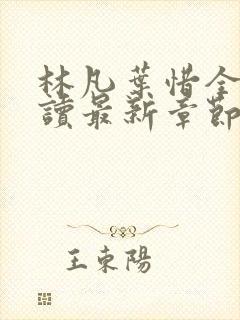 林凡葉惜全
讀最新章節
王東陽